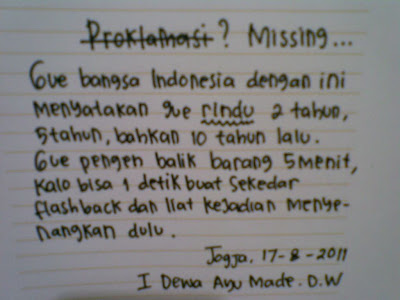 Proklamasi? Missing...
Gue bangsa Indonesia dengan ini
menyatakan gue rindu 2 tahun,
5 tahun, bahkan 10 tahun lalu.
Gue pengen balik barang 5 menit,
kalo bisa 1 detik buat sekedar
flashback dan liat kejadian menye-
nangkan dulu.
Jogja, 17-8-2011
I Dewa Ayu Made. D.W